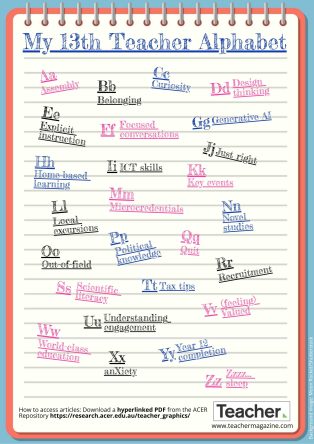 My 13th Teacher Alphabet
Aa
Assembly
Bb
Belonging
Cc
Curiosity
Dd Design
thinking
Ee
Explicit
instruction
Ff Focused
conversations
Gg Generative AI
Hh
Home-based
learning
Ii ICT skills
Jj Just right
Kk
Key events
Ll
Local
excursions
Mm
Microcredentials
Nn
Novel
studies
Oo
Out-of-field
Pp
Political
knowledge
Qq
Quit
Rr
Recruitment
Ss Scientific
literacy
Tt Tax tips
Uu Understanding
engagement
Vv (feeling)
Valued
Ww
World-class
education
Xx
anXiety
Yy Year 12
completion
Zz Zzzz...
sleep
How to access articles: Download a hyperlinked PDF from the ACER
Repository https://research.acer.edu.au/teacher_graphics/
Teacher.
www.teachermagazine.com